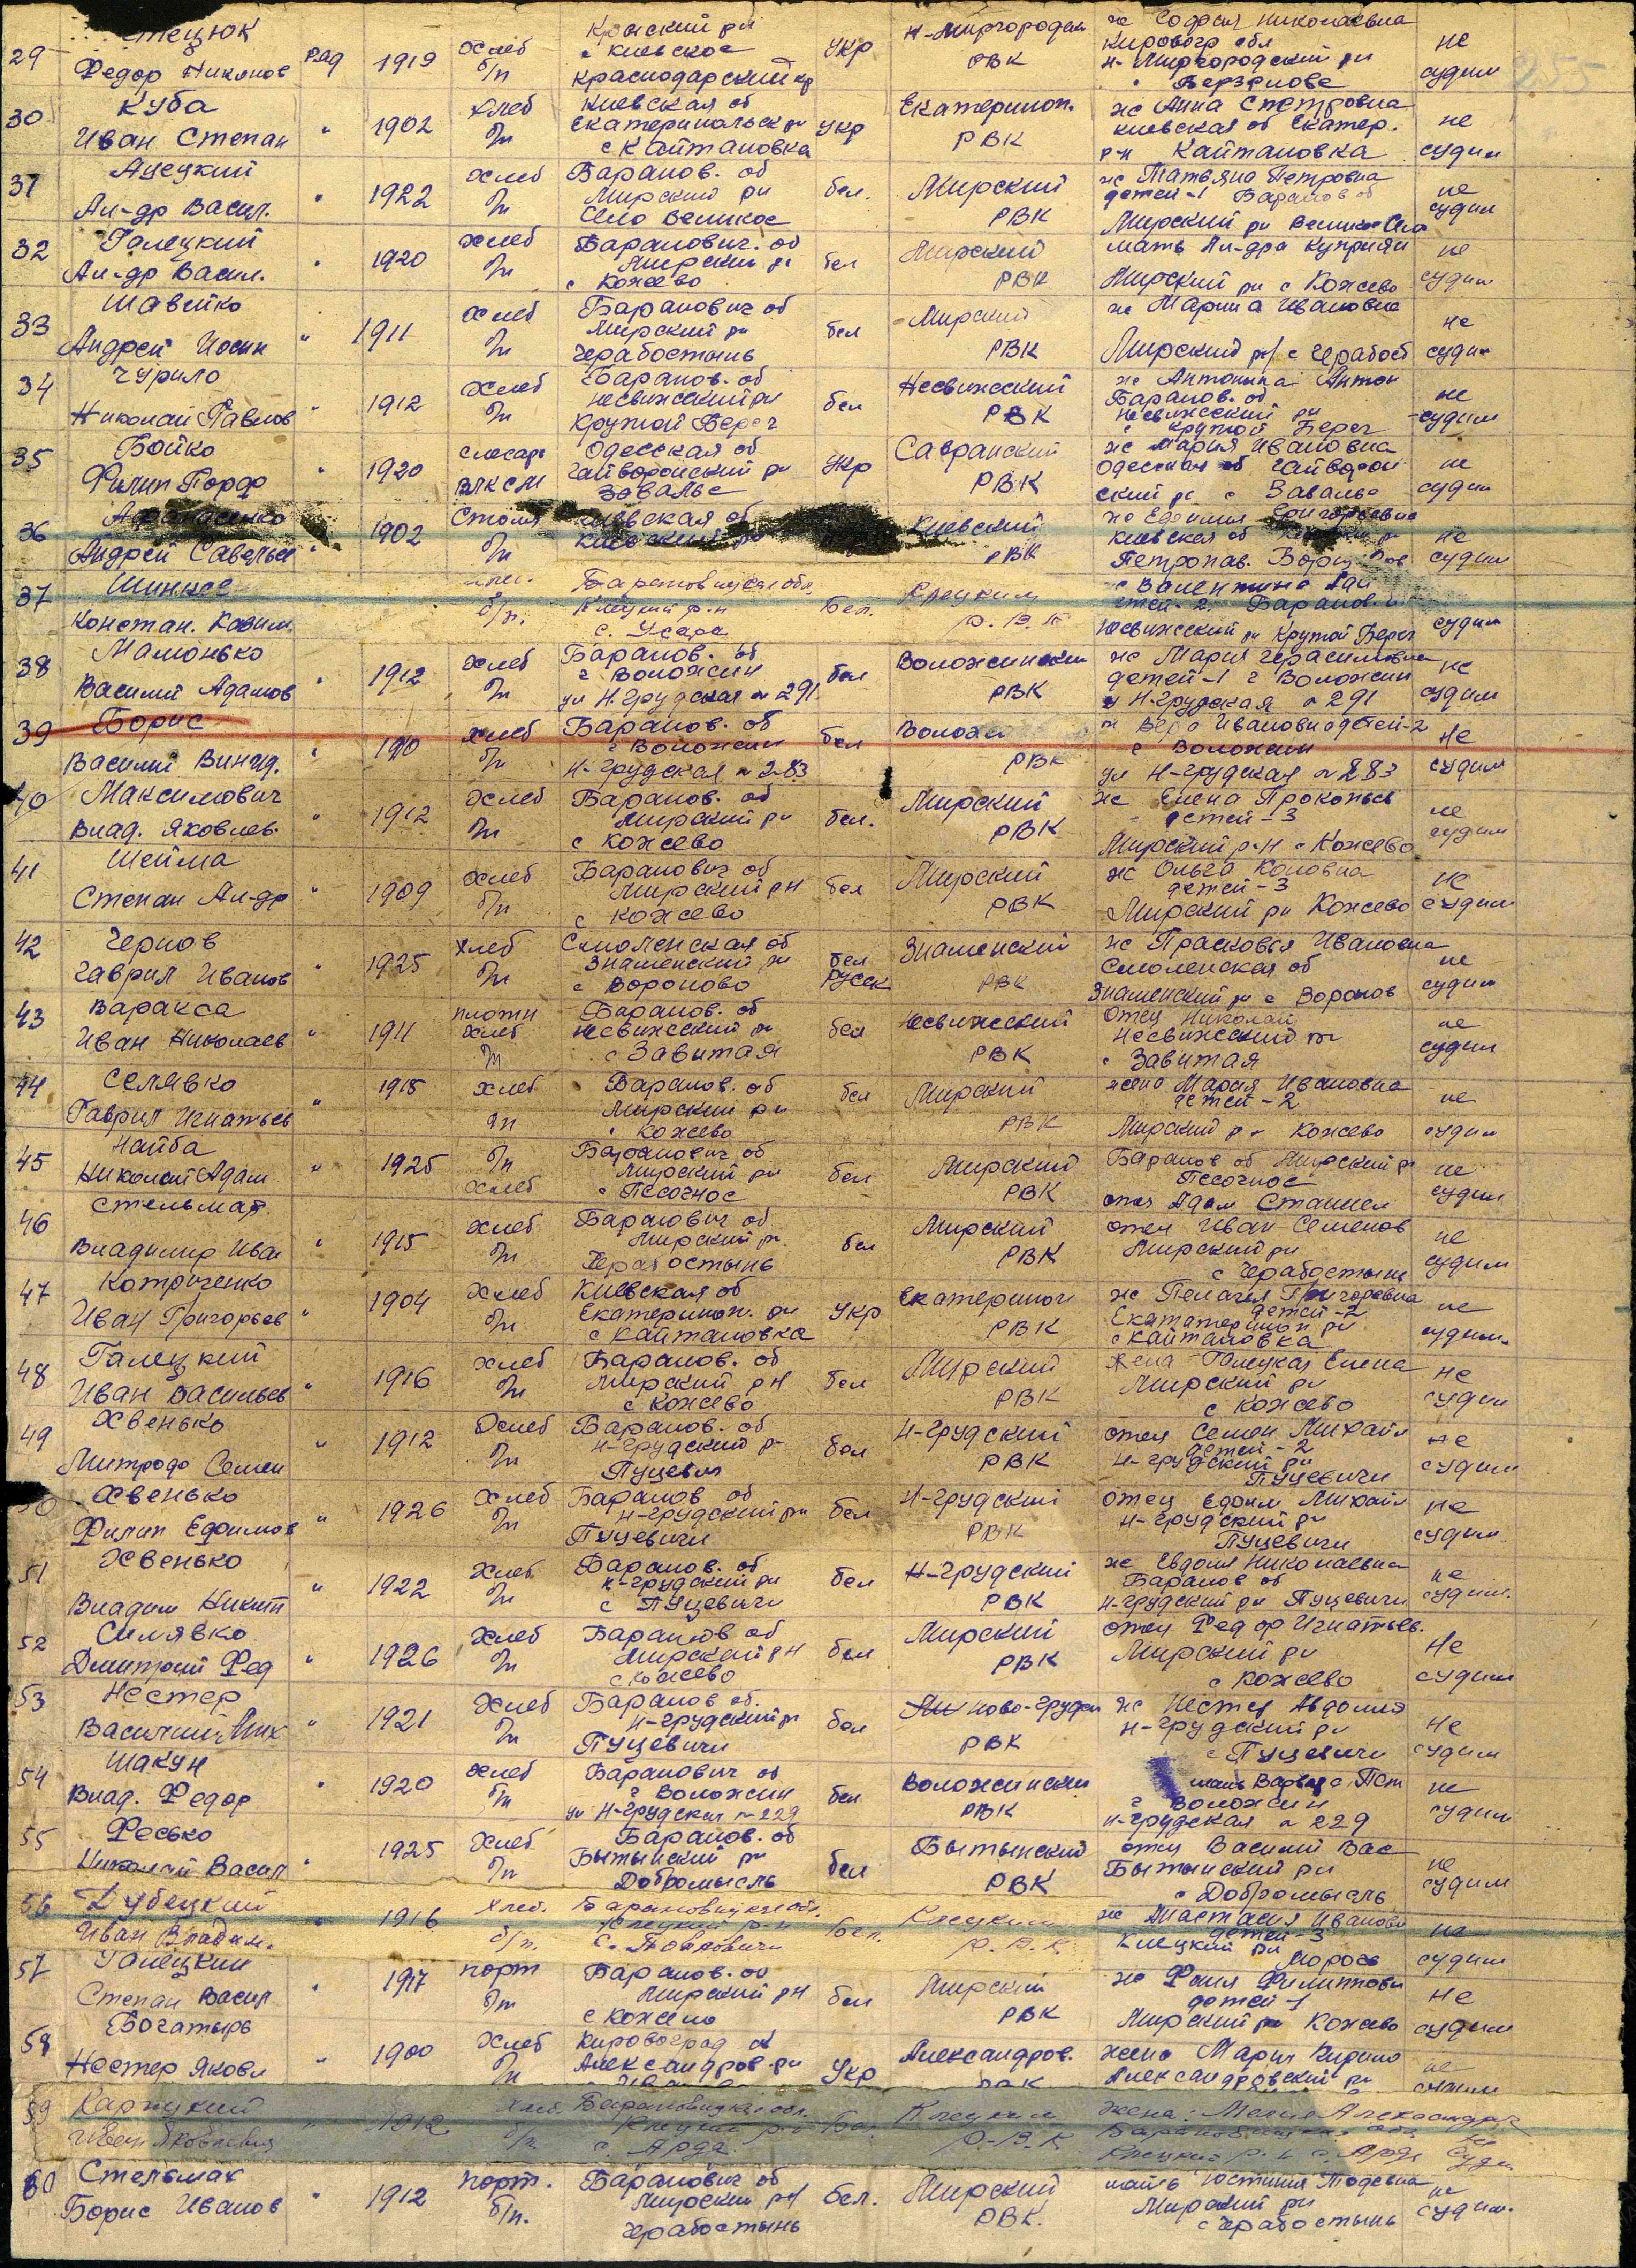 Стецюк Кр ский рн же София Николаевна
29 Федор Никонов ряд 1919 хлеб б/п с Киевское Краснодарский кр укр Н-Миргородск РВК Кировогр обл Н-Миргородский рн не судим
30 Куба Киевская об же Анна
Иван Степан " 1902 хлеб б/п с Кайтановка укр Екатериноп. РВК Киевская об Екатер. р-н Кайтановка не судим
31 Баранов. об же Татьяна Петровна
Ал-др Васил. " 1922 хлеб б/п Мирский рн Село Великое бел. Мирский РВК детей-1 Баранов об Мирский рн Великое Село не судим
32 Галецкий Баранович. об мать Ал-дра
Ал-др Васил. " 1920 хлеб б/п Мирский рн с Кожево бел Мирский РВК Мирский рн с Кожево не судим
33 Шавейко Баранович об же Марина Ивановна
Андрей Иосин " 1911 хлеб б/п Мирский рн Черабостынь бел Мирский РВК Мирский рн с Черабост не судим
34 Чурило Баранов. об же Антонина Антон
Николай Павлов " 1912 хлеб б/п Несвижский рн Крутой Берег бел Несвижский РВК Баранов. об Несвижский рн с Крутой Берег не судим
35 Бойко Одесская об же Мария Ивановна
Филип Порф " 1920 слесарь ВЛКСМ Гайворонский рн Завалье укр Савранский РВК Одесская об Гайворонский рн с Завалье не судим
36 Афанасенко Киевская об же Григорьевна
Андрей Савельев " 1902 б/п Киевский рн Киевский РВК Киевская об Петропав. Борщ не судим
37 Барановицкая обл. Валентина
Констан. Казим. б/п. Клецкий р-н с. Бел. Клецким Р.В.К детей-2. Баранов. Несвижский рн Крутой Берег судим
38 Мамонько Баранов. об же Мария Герасимовна
Василий Адамов " 1912 хлеб б/п г Воложин ул Н.Грудская № 291 бел Воложинский РВК детей-1 г Воложин у Н.Грудская № 291 не судим
39 Борис Баранов. об ж Вера Ивановна детей-2
Василий " 1910 хлеб б/п г Воложин Н-Грудская № 283 бел Воложи РВК с Воложин ул Н-Грудская № 283 не судим
40 Максимович Баранов. об же Елена Прокопьев
Влад. Яковлев. " 1912 хлеб б/п Мирский рн с Кожево бел. Мирский РВК детей-3 Мирский р-н с Кожево не судим
41 Шейма Баранович об же Ольга
Степан Ал-др " 1909 хлеб б/п Мирский рн с Кожево бел Мирский РВК детей-3 Мирский рн Кожево не судим
42 Чернов Смоленская об же Прасковья Ивановна
Гаврил Иванов " 1925 хлеб б/п Знаменский рн с Вороново бел русск Знаменский РВК Смоленская об Знаменский рн с Воронов не судим
43 Варакса плотн Баранов. об отец Николай
Иван Николаев " 1911 хлеб б/п Несвижский рн с Завитая бел Несвижский РВК Несвижский рн с Завитая не судим
44 Селявко 1918 хлеб Баранов. об жена Мария Ивановна
Гаврил Игнатьев " б/п Мирский рн с Кожево бел Мирский РВК детей-2 Мирский рн Кожево не судим
45 Найба Баранович об Баранов об Мирский рн
Николай Адам " 1925 б/п хлеб Мирский рн с Песочное бел Мирский РВК Песочное отец Адам не судим
46 Стельмах Баранович об отец Иван Семенов
Владимир Иван " 1915 хлеб б/п Мирский рн. Черабостынь бел Мирский РВК Мирский рн с Черабостынь не судим
47 Котриченко Киевская об же Пелагея Григоревна
Иван Григорьев " 1904 хлеб б/п Екатериноп. рн с Кайтановка укр Екатериноп РВК детей-2 рн с Кайтановка не судим.
48 Галецкий Баранов. об жена Галецкая Елена
Иван Васильев " 1916 хлеб б/п Мирский рн с Кожево бел Мирский РВК Мирский рн с Кожево не судим
49 Хвенько Баранов. об отец Семен Михайл
Митрофо Семен " 1912 хлеб б/п Н-Грудский р Пуцевич бел Н-Грудский РВК детей-2 Н-Грудский рн Пуцевичи не судим
50 Хвенько Баранов об отец Ефим Михайл
Филип Ефимов " 1926 хлеб б/п Н-Грудский рн Пуцевичи бел Н-Грудский РВК Н-Грудский рн Пуцевичи не судим
51 Хвенько Баранов. об же Евдокия Николаевна
Владим Никит " 1922 хлеб б/п Н-Грудский рн с Пуцевичи бел Н-Грудский РВК Баранов об Н-Грудский рн Пуцевичи не судим.
52 Силявко Баранов об отец Федор Игнатьев.
Дмитрий Фед " 1926 хлеб б/п Мирский рн с Кожево бел Мирский РВК Мирский рн с Кожево не судим
53 Нестер Баранов об. же Нестер Авдотия
Василий Мих " 1921 хлеб б/п Н-Грудский рн Пуцевичи бел Ново-Грудск РВК Н-Грудский рн с Пуцевичи не судим
54 Шакун Баранович об мать Варвара Пет
Влад. Федор " 1920 хлеб б/п г Воложин ул Н-Грудская № 229 бел Воложинский РВК г Воложин Н-Грудская № 229 не судим
55 Фесько Баранов. об отец Василий Вас
Николай Васил " 1925 хлеб б/п Бытынский рн Добромысль бел Бытынский РВК Бытынский рн с Добромысль не судим
56 Дубецкий Барановицкая обл. же Анастасия Иванов
Иван Владим. " 1916 хлеб. б/п. Клецкий р-н с. бел. Клецким Р.В.К. детей-3 Клецкий рн Морочь не судим
57 Галецкий порт Баранов. об же Филиппов
Степан Васил " 1917 б/п Мирский рн с Кожево бел Мирский РВК детей-1 Мирский рн Кожево не судим
58 Богатырь Кировоград об жена Мария Кирило
Нестер Яковл " 1900 хлеб б/п Александров. рн укр Александров. РВК Александровский рн не судим
59 Барановицкая обл. жена: Мария Александр
Иван Яковлевич " 1912 хлеб б/п Клецкий р-н с. Арда Бел. Клецким Р.В.К Барановицкая обл. Клецкий р-н с. Арда не судим
60 Стельмах порт. Баранович об мать Юстиния
Борис Иванов " 1912 б/п. Мирский рн Черабостынь бел. Мирский РВК. Мирский рн с Черабостынь не судим.